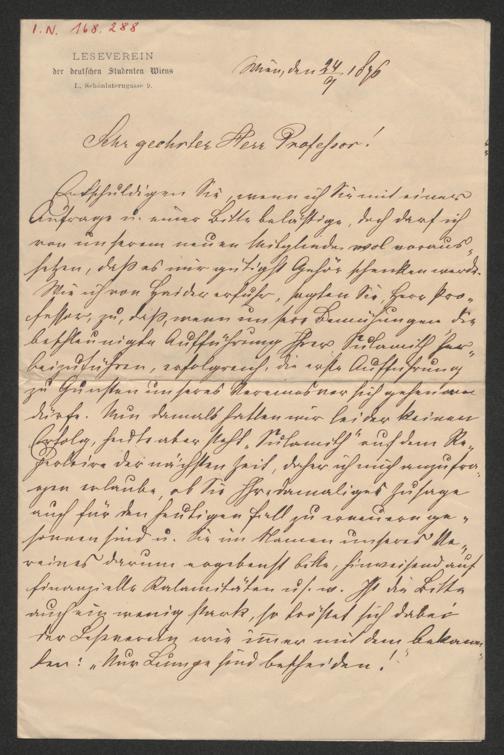 I.N. 168.288
LESEVEREIN
der deutschen Studenten Wiens
I., Schönlaterngasse 9.
Wien, den 24/9 1876
Sehr geehrter Herr Professor!
Entschuldigen Sie, wenn ich Sie mit einer
Anfrage u. einer Bitte belästige, doch darf ich
von unserem neuen Mitgliede wol voraus-
setzen, daß es mir gütigst Gehör schenken werde.
Wie ich von Heider erfuhr, sagten Sie, Herr Pro-
fessor, zu, daß, wenn unsere Bemühungen die
beschleunigte Aufführung Ihrer „Sulamith" her-
beizuführen, erfolgreich, die erste Aufführung
zu Gunsten unseres Vereines vor sich gehen
dürfe. Nun, damals hatten wir leider keinen
Erfolg, heute aber steht „Sulamith" auf dem Re-
pertoire der nächsten Zeit, daher ich mich anzufra-
gen erlaube, ob Sie Ihre damalige Zusage
auch für den heutigen Fall zu erneuern ge-
sonnen sind u. Sie im Namen unseres Ve-
reines darum ergebenst bitte, hinweisend auf
finanzielle Kalamitäten u. s. w. Ist die Bitte
auch ein wenig stark, so tröstet sich dabei
der Leseverein wie immer mit dem bekann-
ten: „Nur Lumpe sind bescheiden!"